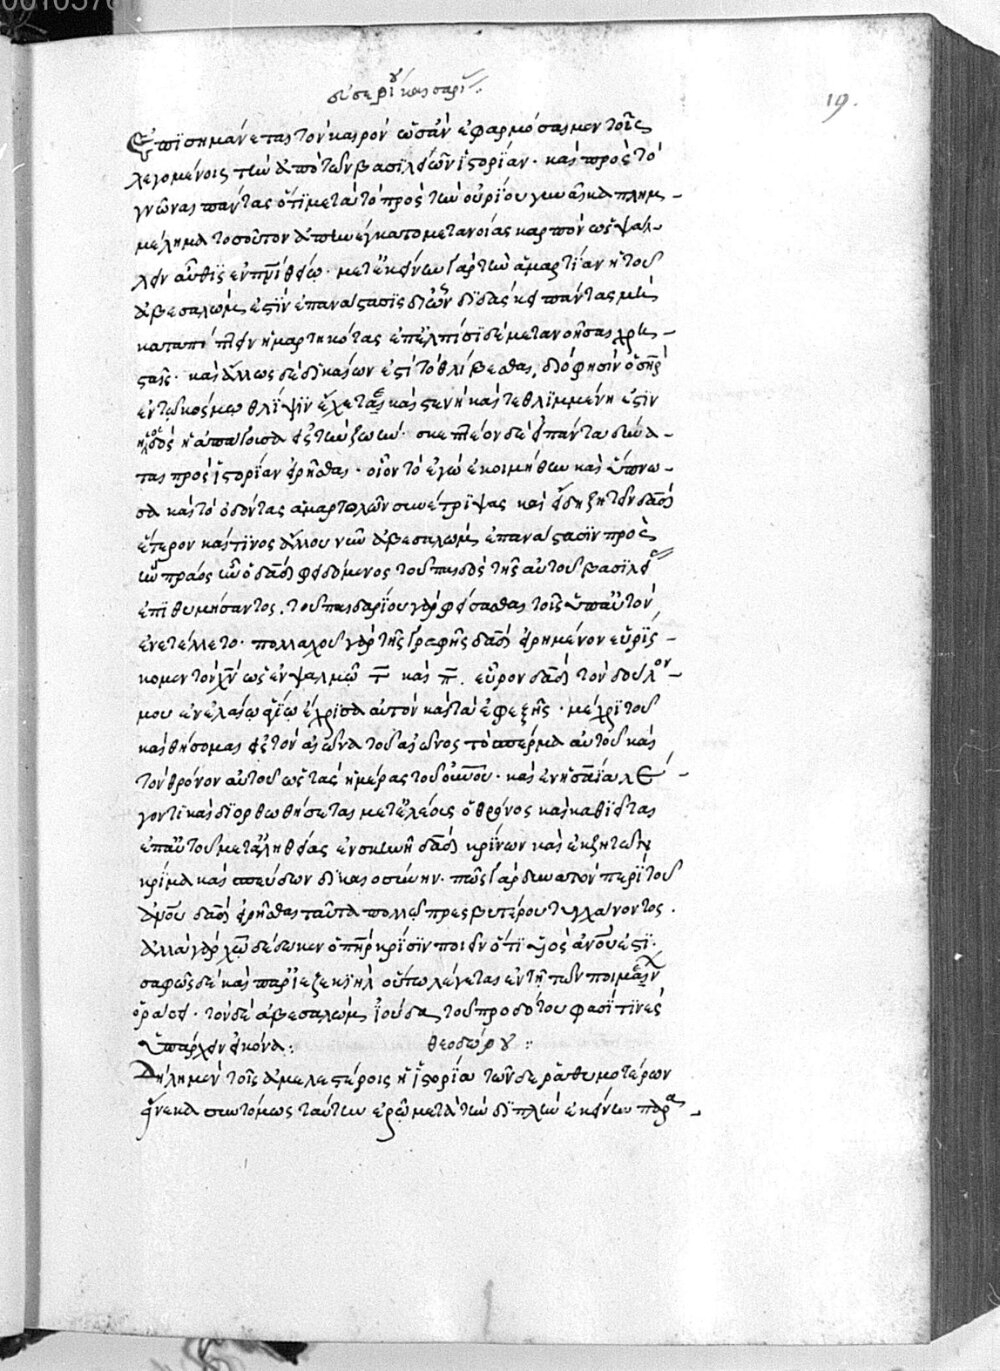 εὐσεβίου καισαρί
19.
Ἐπισημαίνεται τὸν καιρὸν ὡς ἂν ἐφαρμόσαιμεν τοῖς
λεγομένοις τὴν ἀπὸ τῶν βασιλειῶν ἱστορίαν· καὶ πρὸς τὸ
γνῶναι πάντας ὅτι μετὰ τὸ πρὸς τὴν οὐρίου γυναῖκα πλημ-
μέλημα τοσοῦτον ἀπήνεγκατο μετανοίας καρπὸν ὡς ψάλ-
λειν αὖθις ἐν πνι θείῳ· μετ' ἐκείνην γὰρ τὴν ἁμαρτίαν ἡ τοῦ
ἀβεσαλὼμ ἐστὶν ἐπανάστασις δι' ὧν διδάσκει πάντας μὴ
καταπίπτειν ἡμαρτηκότας ἐπ' ἐλπίσι δὲ μετανοῆσαι χρη-
σταῖς· καὶ ἄλλως δὲ δικαίων ἐστὶ τὸ θλίβεσθαι, διό φησιν ὁ σὴρ
ἐν τῷ κόσμῳ θλίψιν ἔχετε καὶ στενὴ καὶ τεθλιμμένη ἐστὶν
ἡ ὁδὸς ἡ ἀπάγουσα εἰς τὴν ζωήν· οὐκ πλεῖον δὲ πάντα δύνα-
ται πρὸς ἱστορίαν εἰρῆσθαι· οἷον τὸ ἐγὼ ἐκοιμήθην καὶ ὕπνω-
σα καὶ τὸ ὀδόντας ἁμαρτωλῶν συνέτριψας καὶ ζητεῖν δαδ
ἕτερον καὶ τινος ἄλλου υἱοῦ ἀβεσαλὼμ ἐπανάστασιν πρὸς
ὃν πρᾶος ὢν ὁ δαδ φειδόμενος τοῦ παιδὸς τῆς αὐτοῦ βασιλεί
ἐπιθυμήσαντος, τοῦ παιδαρίου γὰρ φείσασθαι τοῖς ὑπ' αὐτὸν
ἐνετέλλετο· πολλαχοῦ γὰρ τῆς γραφῆς δαδ εἰρημένον εὑρίσ-
κομεν τὸν χν ὡς ἐν ψαλμῷ π καὶ η. εὗρον δαδ τὸν δοῦλον
μου ἐν ἐλαίῳ ἁγίῳ ἔχρισα αὐτὸν καὶ τὰ ἐφεξῆς· μέχρι τοῦ
καὶ θήσομαι εἰς τὸν αἰῶνα τοῦ αἰῶνος τὸ σπέρμα αὐτοῦ καὶ
τὸν θρόνον αὐτοῦ ὡς τὰς ἡμέρας τοῦ οὐνοῦ· καὶ ἐν ἡσαΐᾳ λέ-
γοντι καὶ διορθωθήσεται μετ' ἐλέους ὁ θρόνος καὶ καθιεῖται
ἐπ' αὐτοῦ μετ' ἀληθείας ἐν σκηνῇ δαδ κρίνων καὶ ἐκζητῶν
κρίμα καὶ σπεύδων δικαιοσύνην· πῶς γὰρ δυνατὸν περὶ τοῦ
ἀνου δαδ εἰρῆσθαι ταῦτα πολλῷ πρεσβυτέρου τυγχάνοντος.
ἀλλὰ γὰρ χῶ δέδωκεν ὁ πηρ κρίσιν ποιεῖν ὅτι υἱὸς ἀνου ἐστι·
σαφῶς δὲ καὶ παρ' ἰεζεκιὴλ οὕτω λέγεται ἐν τῇ τῶν ποιμαίν
ὁράσει· τὸν δὲ ἀβεσαλὼμ ἰούδα τοῦ προδότου φασί τινες
ὑπάρχειν εἰκόνα:
θεοδώρου:
Δήλη μὲν τοῖς ἀμελεστέροις ἡ ἱστορία τῶν δὲ ῥαθυμοτέρων
εἵνεκα συντόμως ταύτην ἐρῶ μετὰ τὴν διπλὴν ἐκείνην παρα-